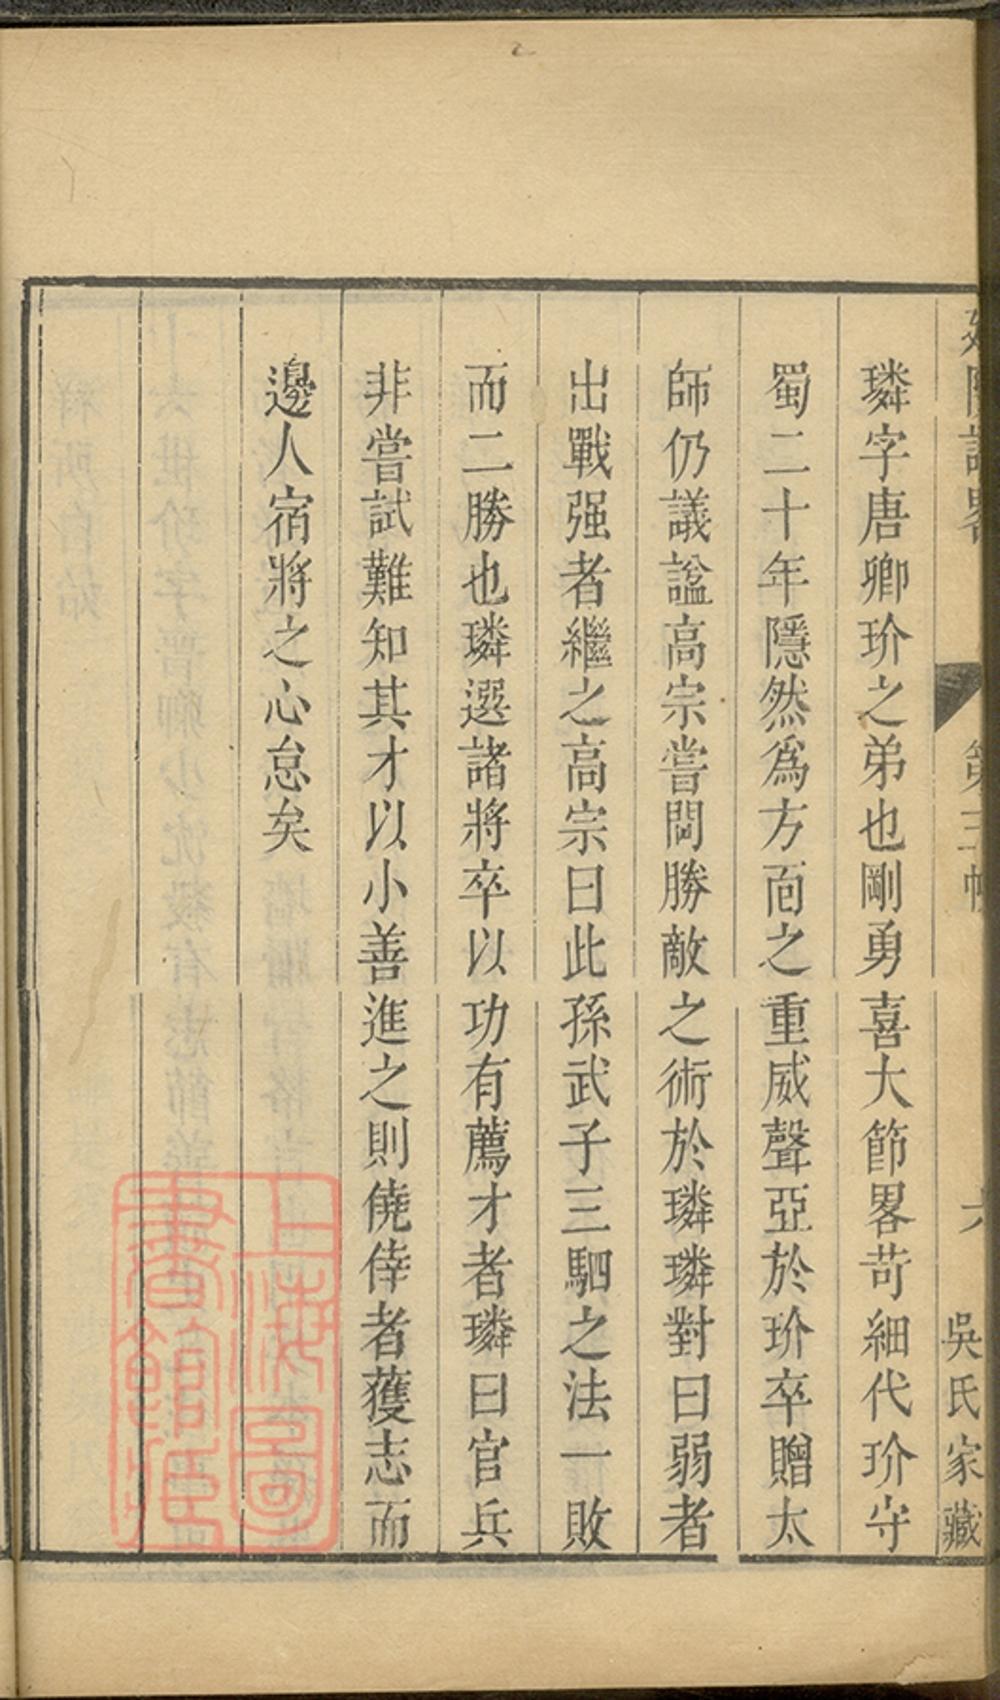 璘字唐卿玠之弟也剛勇喜大節畧苛細代玠守
蜀二十年隱然爲方面之重威聲亞於玠卒贈太
師仍議諡高宗嘗問勝敵之術於璘璘對曰弱者
出戰强者繼之高宗曰此孫武子三駟之法一敗
而二勝也璘選諸將卒以功有薦才者璘曰官兵
非嘗試難知其才以小善進之則僥倖者獲志而
邊人宿將之心怠矣
吳氏家藏
上海圖書館藏